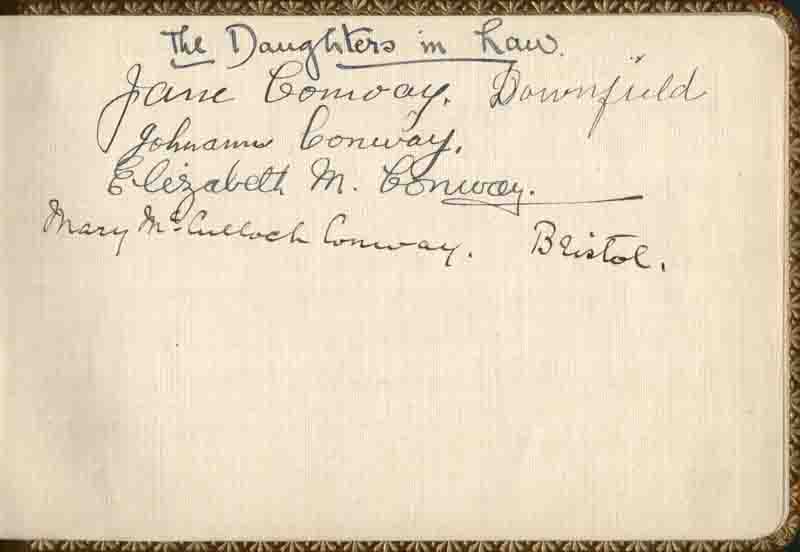 The Daughters in Law.
Jane Conway. Downfield
Johnann Conway.
Elizabeth M. Conway.
Mary McCulloch Conway. Bristol.